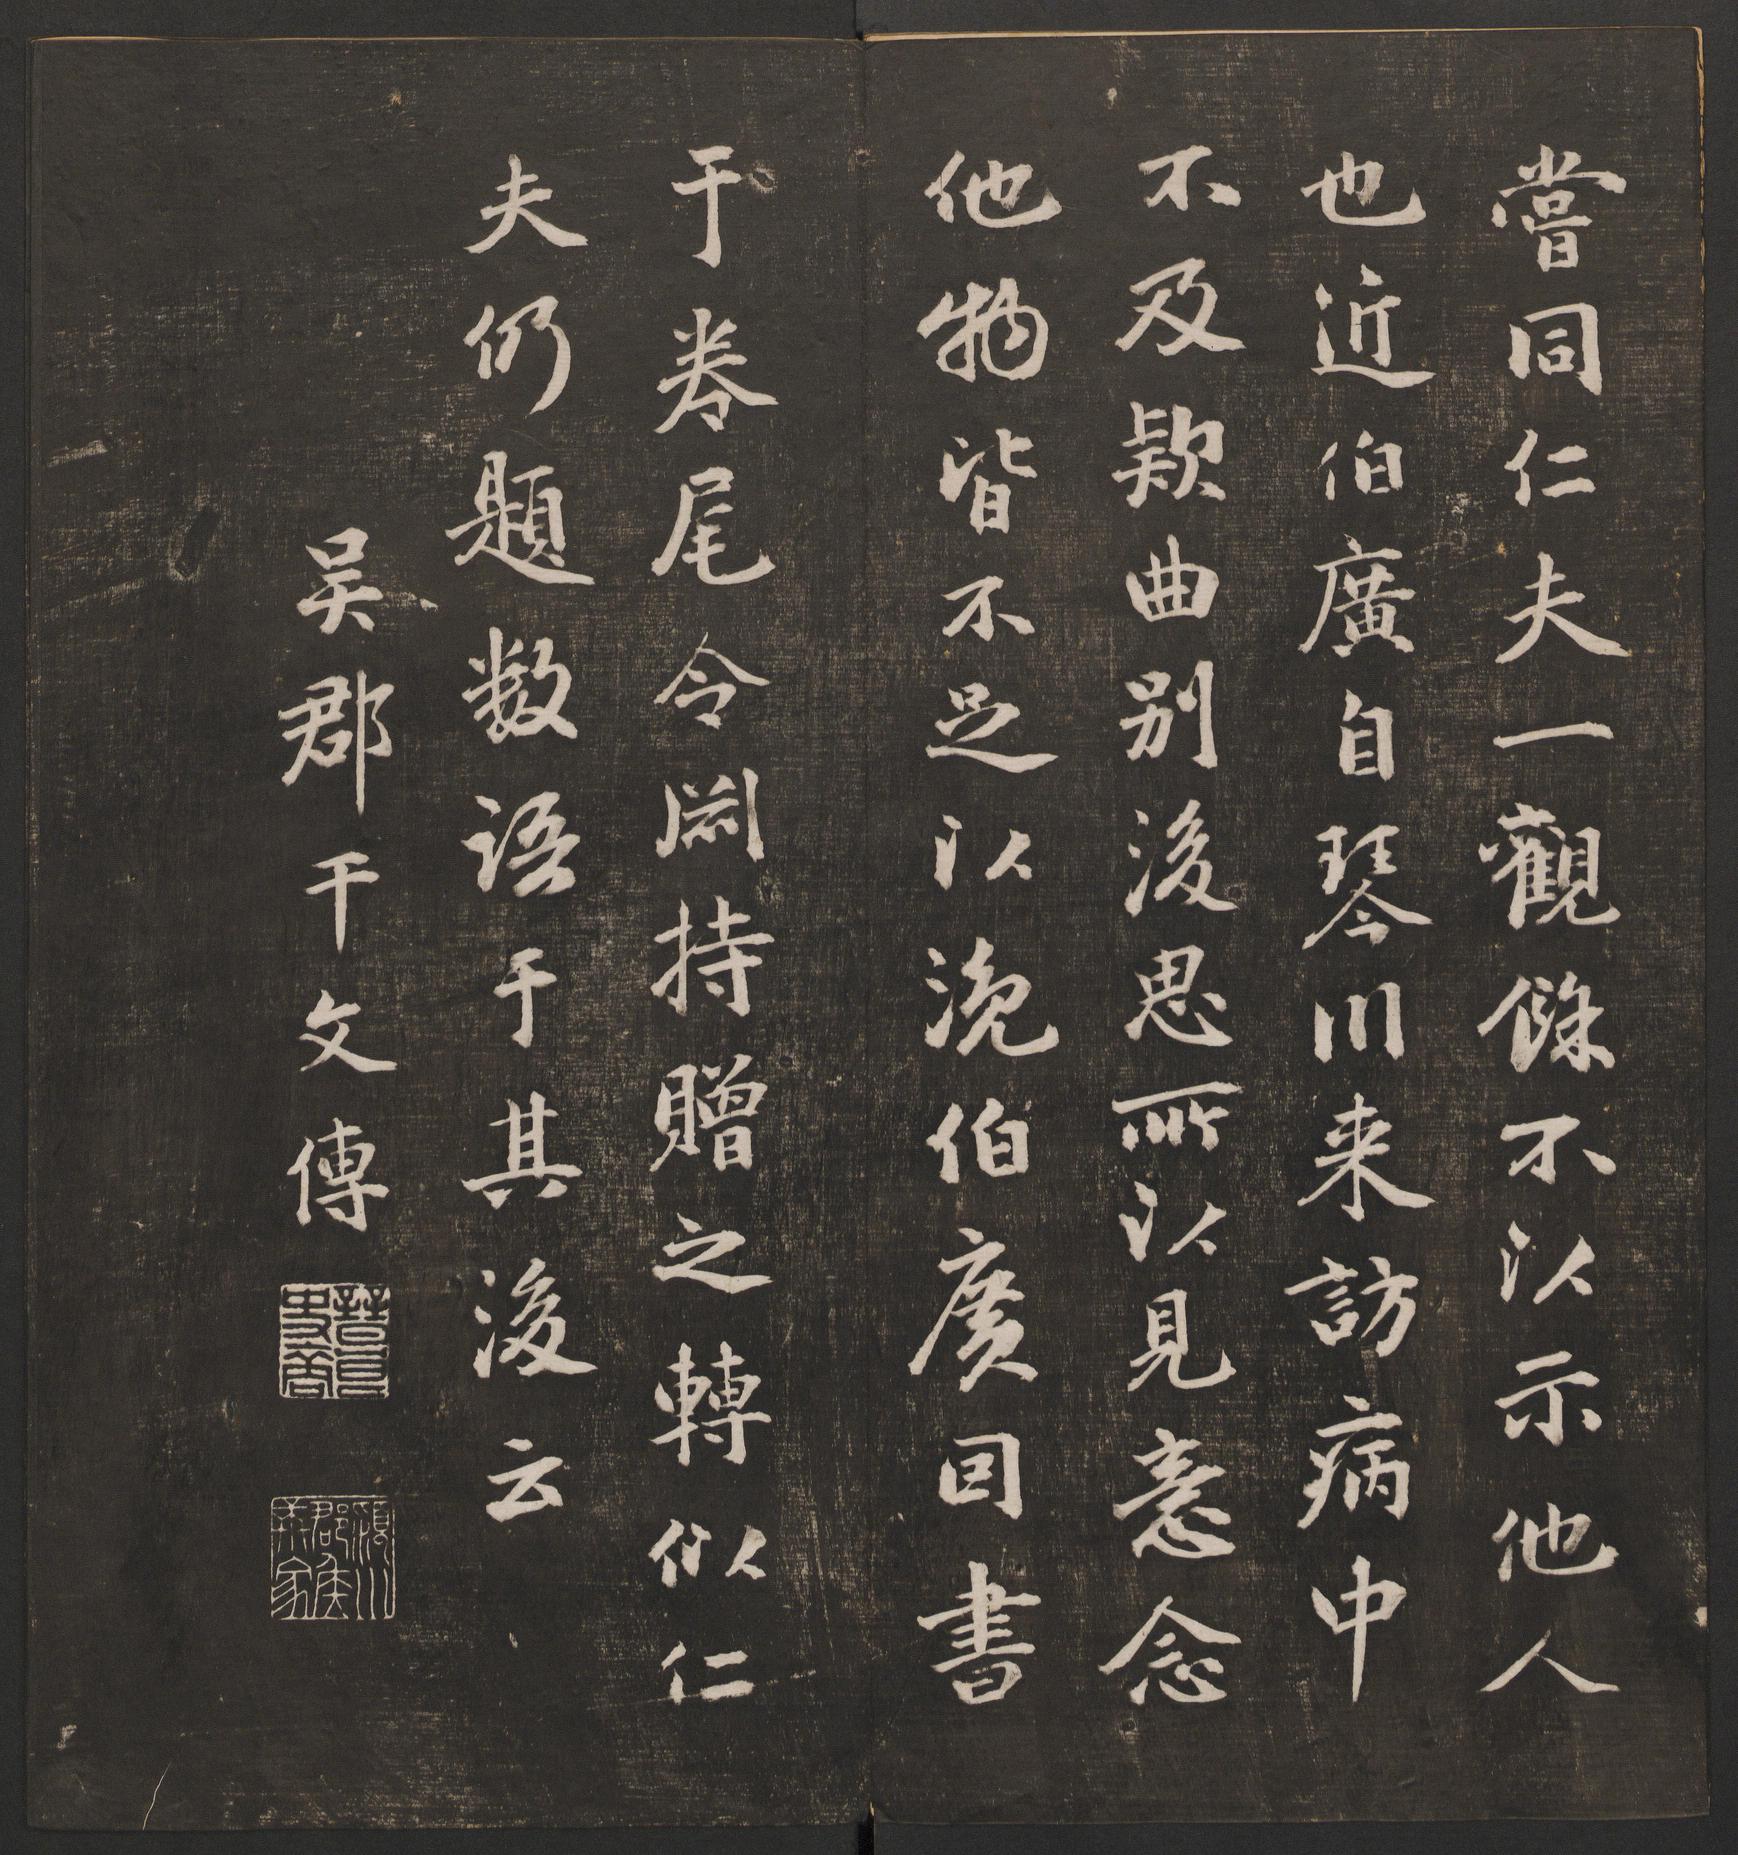 嘗同仁夫一觀餘不以示他人
也近伯廣自琴川来訪病中
不及欵曲别後思所以見意念
他物皆不足以浼伯廣回書
于卷尾令闲持贈之轉似仁
夫仍題数语于其後云
吴郡干文傳